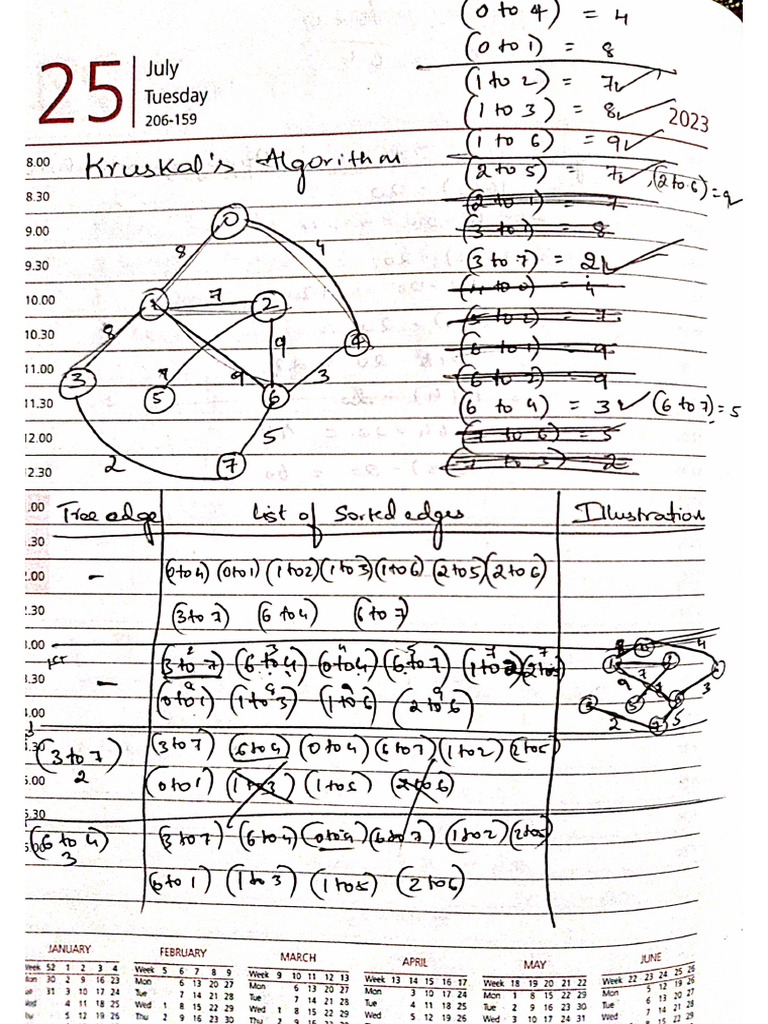 (0 to 4) = 4
(0 to 1) = 8
(1 to 2) = 7 ✓
(1 to 3) = 8 ✓
(1 to 6) = 9 ✓
(2 to 5) = 7 ✓, (2 to 6) = 9
(2 to 1) = 7
(3 to 1) = 8
(3 to 7) = 2 ✓
(4 to 0) = 4
(5 to 2) = 7
(6 to 1) = 9
(6 to 2) = 9
(6 to 4) = 3 ✓ (6 to 7) = 5
(7 to 6) = 5
(7 to 3) = 2
25
July
Tuesday
206-159
2023
8.00
Kruskal's Algorithm
8.30
9.00
9.30
10.00
10.30
11.00
11.30
12.00
12.30
0
8
4
1
7
2
8
9
4
3
5
9
6
3
5
2
7
Tree edge
List of Sorted edges
Illustration
- (0 to 4) (0 to 1) (1 to 2) (1 to 3) (1 to 6) (2 to 5) (2 to 6)
(3 to 7) (6 to 4) (6 to 7)
1st
2 3 4 5 7 7
- (3 to 7) (6 to 4) (0 to 4) (6 to 7) (1 to 2) (2 to 5)
(0 to 1) (1 to 3) (1 to 6) (2 to 6)
(3 to 7) (3 to 7) (6 to 4) (0 to 4) (6 to 7) (1 to 2) (2 to 5)
2
(0 to 1) (1 to 3) (1 to 5) (2 to 6)
(6 to 4) (3 to 7) (6 to 4) (0 to 4) (6 to 7) (1 to 2) (2 to 5)
3
(0 to 1) (1 to 3) (1 to 5) (2 to 6)
JANUARY
FEBRUARY
MARCH
APRIL
MAY
JUNE
Week 52 1 2 3 4
Week 5 6 7 8 9
Week 9 10 11 12 13
Week 13 14 15 16 17
Week 18 19 20 21 22
Week 22 23 24 25 26
Mon 30 2 9 16 23
Mon 6 13 20 27
Mon 6 13 20 27
Mon 3 10 17 24
Mon 1 8 15 22 29
Mon 5 12 19 26
Tue 31 3 10 17 24
Tue 7 14 21 28
Tue 7 14 21 28
Tue 4 11 18 25
Tue 2 9 16 23 30
Tue 6 13 20 27
Wed 4 11 18 25
Wed 1 8 15 22
Wed 1 8 15 22 29
Wed 5 12 19 26
Wed 3 10 17 24 31
Thu 2 9 16 23